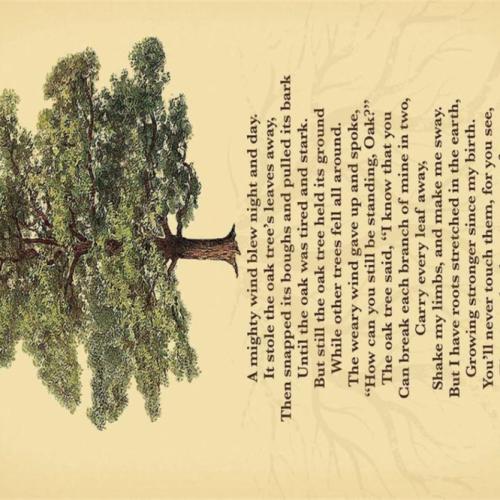 A mighty wind blew night and day.
It stole the oak tree's leaves away,
Then snapped its boughs and pulled its bark
Until the oak was tired and stark.
But still the oak tree held its ground
While other trees fell all around.
The weary wind gave up and spoke,
"How can you still be standing, Oak?"
The oak tree said, "I know that you
Can break each branch of mine in two,
Carry every leaf away,
Shake my limbs, and make me sway.
But I have roots stretched in the earth,
Growing stronger since my birth.
You'll never touch them, for you see,